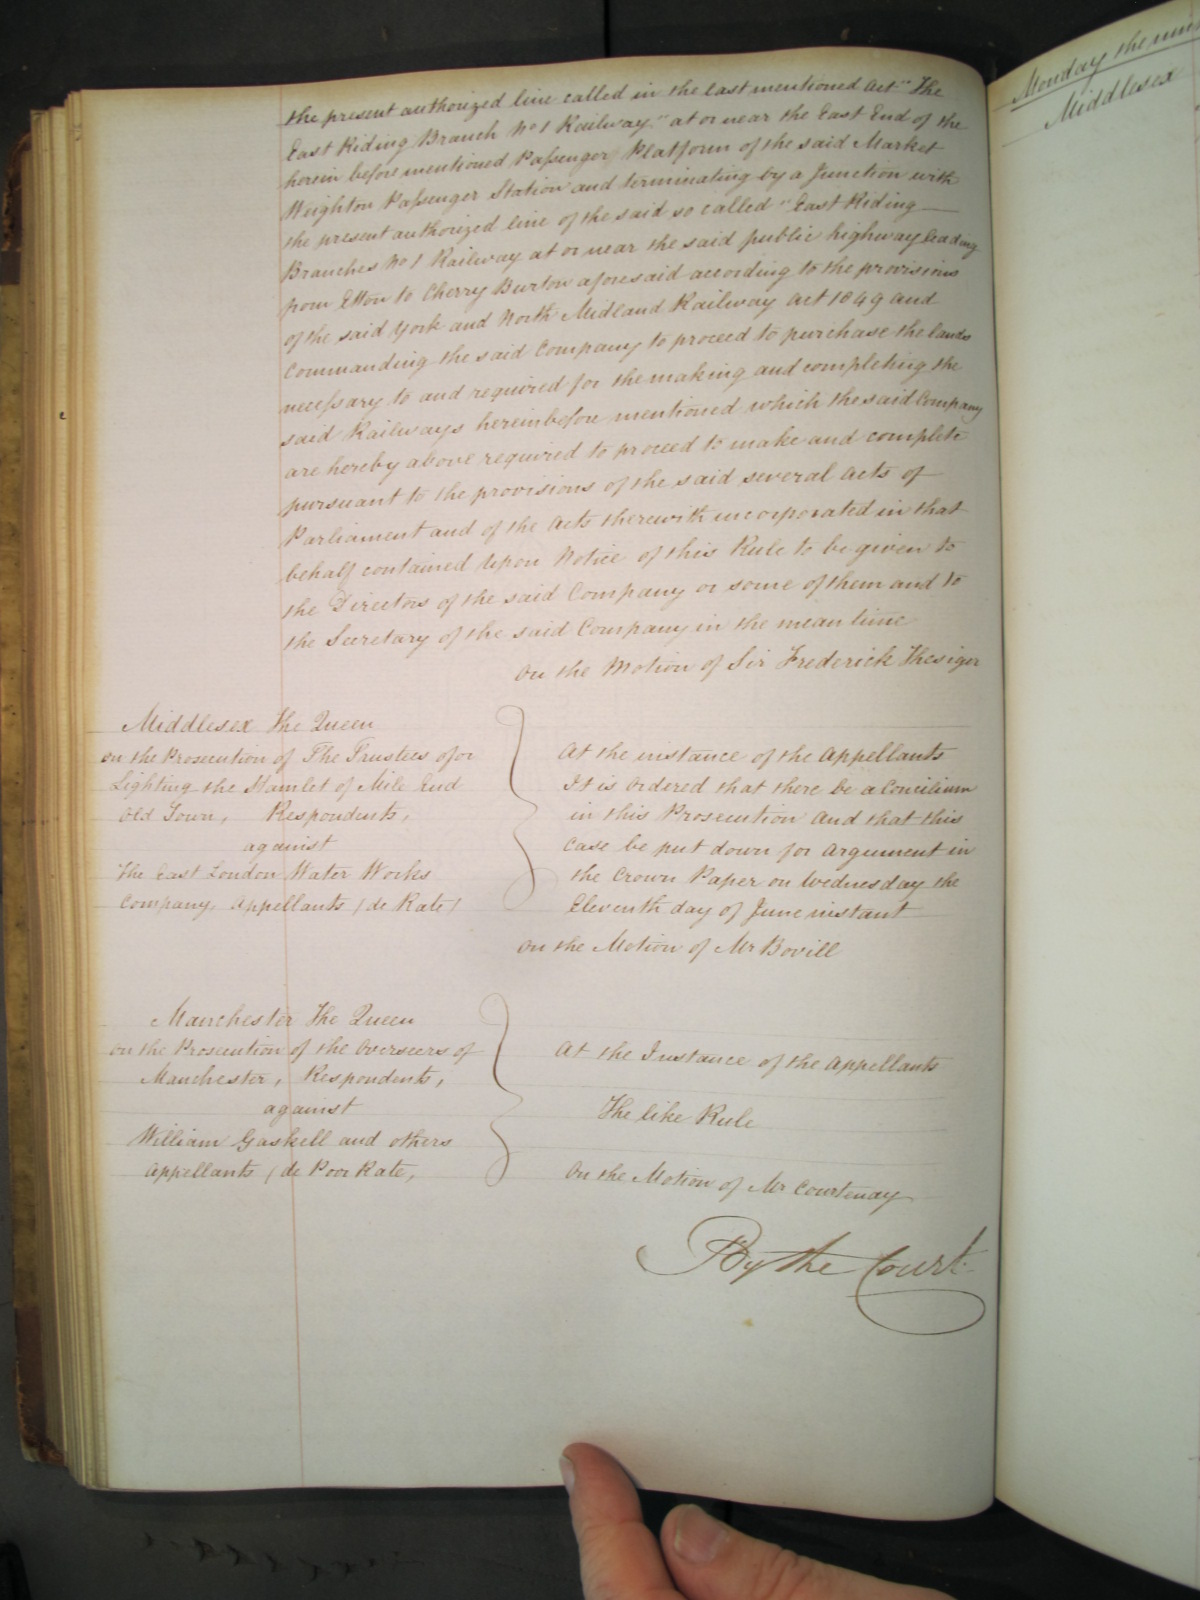 the present authorized line called in the last mentioned Act "The
East Riding Branch No 1 Railway" at or near the East End of the
herein before mentioned Passenger Platform of the said Market
Weighton Passenger Station and terminating by a Junction with
the present authorized line of the said so called "East Riding
Branches No 1 Railway at or near the said public highway leading
from Etton to Cherry Burton aforesaid according to the provisions
of the said York and North Midland Railway Act 1849 and
Commanding the said Company to proceed to purchase the lands
necessary to and required for the making and completing the
said Railways hereinbefore mentioned which the said Company
are hereby above required to proceed to make and complete
pursuant to the provisions of the said several Acts of
Parliament and of the Acts therewith incorporated in that
behalf contained Upon Notice of this Rule to be given to
the Directors of the said Company or some of them and to
the Secretary of the said Company in the mean time
On the Motion of Sir Frederick Thesiger
Middlesex The Queen
on the Prosecution of The Trustees of or
Lighting the Hamlet of Mile End
Old Town, Respondents,
against
The East London Water Works
Company, Appellants (de Rate)
At the instance of the Appellants
It is Ordered that there be a Concilium
in this Prosecution And that this
Case be put down for Argument in
the Crown Paper on Wednesday the
Eleventh day of June instant
On the Motion of Mr Bovill
Manchester The Queen
on the Prosecution of the Overseers of
Manchester, Respondents,
against
William Gaskell and others
Appellants (de Poor Rate,
At the Instance of the Appellants
The like Rule
On the Motion of Mr Courtenay
By the Court
Monday the
Middlesex